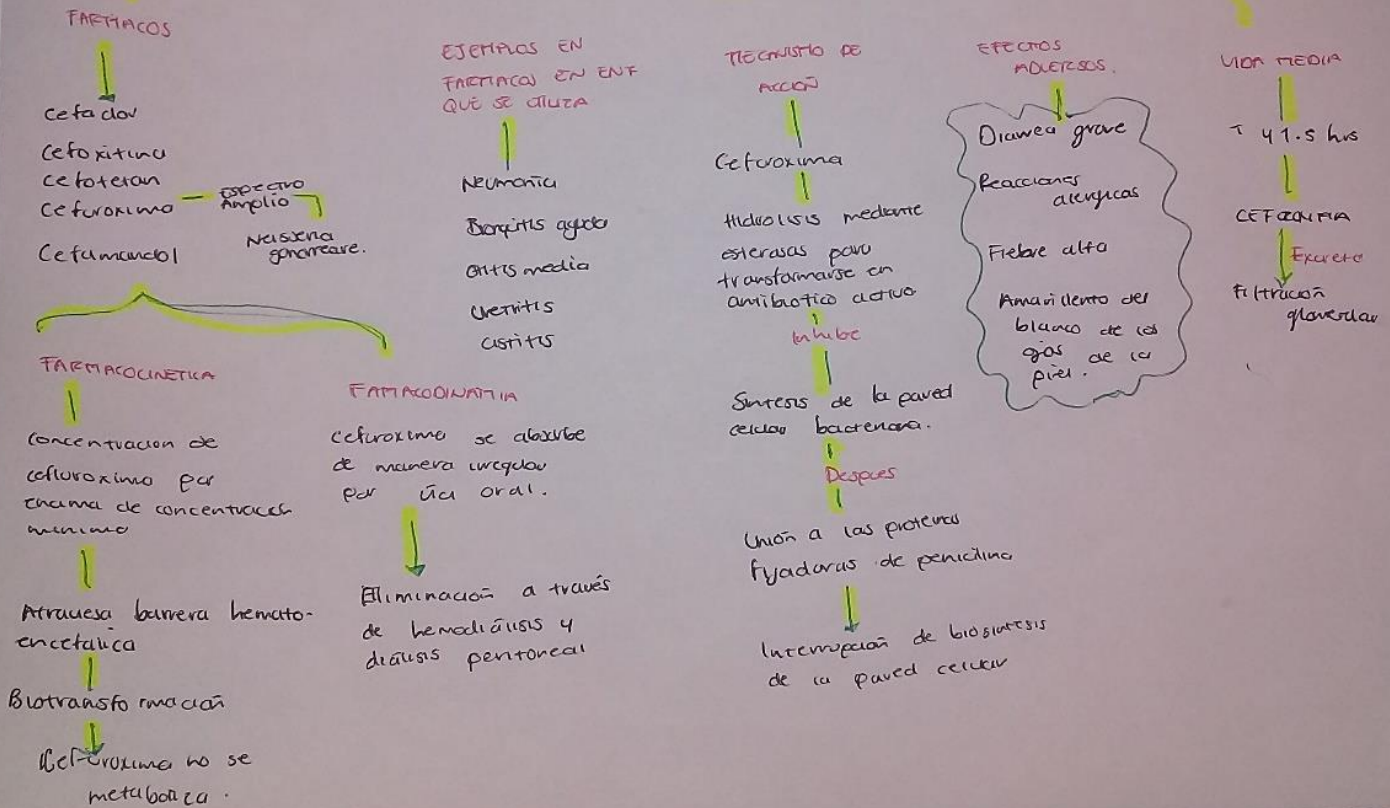 FARMACOS
Cefaclor
Cefoxitina
Cefoteran
Cefuroximo
Cefamandol
ESPECTRO
AMPLIO
Neisseria
gonorreare.
FARMACOCINETICA
Concentracion de
cefluroximo por
encima de concentracion
minimo
Atraviesa barrera hemato-
encefalica
Biotransformación
Cefuroxima no se
metaboliza.
FAMACODINAMIA
Cefuroxima se absorbe
de manera irregular
por vía oral.
Eliminación a través
de hemodiálisis y
diálisis peritoneal
EJEMPLOS EN
FARMACOS EN ENF
QUE SE UTILIZA
Neumonía
Bronquitis aguda
Otitis media
Uretritis
Cistitis
MECANISMO DE
ACCIÓN
Cefuroxima
Hidrolisis mediante
esterasas para
transformarse en
antibiotico activo
Inhibe
Sintesis de la pared
celular bacteriana.
Despues
Unión a las proteinas
fijadoras de penicilina
Interrupción de biosintesis
de la pared celular
EFECTOS
ADVERSOS.
Diarrea grave
Reacciones
alergicas
Fiebre alta
Amarillento del
blanco de los
ojos de la
piel.
VIDA MEDIA
41.5 hrs
Excreta
Filtración